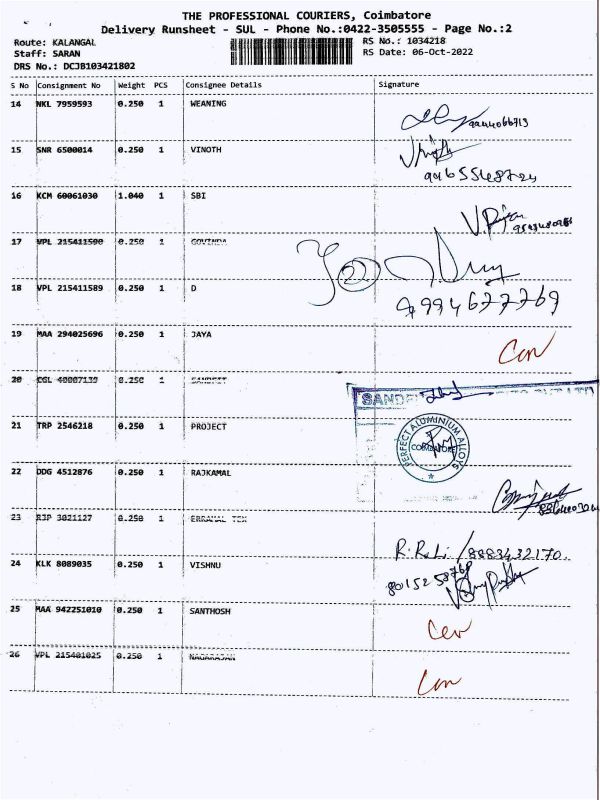 THE PROFESSIONAL COURIERS, Coimbatore
Delivery Runsheet - SUL - Phone No.:0422-3505555 - Page No.:2
Route: KALANGAL
RS No.: 1034218
Staff: SARAN
RS Date: 06-Oct-2022
DRS No.: DCJB103421802
S No Consignment No Weight PCS Consignee Details Signature
14 NKL 7959593 0.250 1 WEANING
15 SNR 6500014 0.250 1 VINOTH
16 KCM 60061030 1.040 1 SBI
17 VPL 215411590 0.250 1 GOVINDA
18 VPL 215411589 0.250 1 D
9994677769
19 MAA 294025696 0.250 1 JAYA
20 0.250 1
21 TRP 2546218 0.250 1 PROJECT
PERFECT ALUMINIUM ALLOYS
COIMBATORE
22 DDG 4512876 0.250 1 RAJKAMAL
23 RJP 3021127 0.250 1 ERRAMAL TEX
8883432170.
24 KLK 8089035 0.250 1 VISHNU
25 MAA 942251010 0.250 1 SANTHOSH
26 VPL 215401025 0.250 1 NAGARAJAN